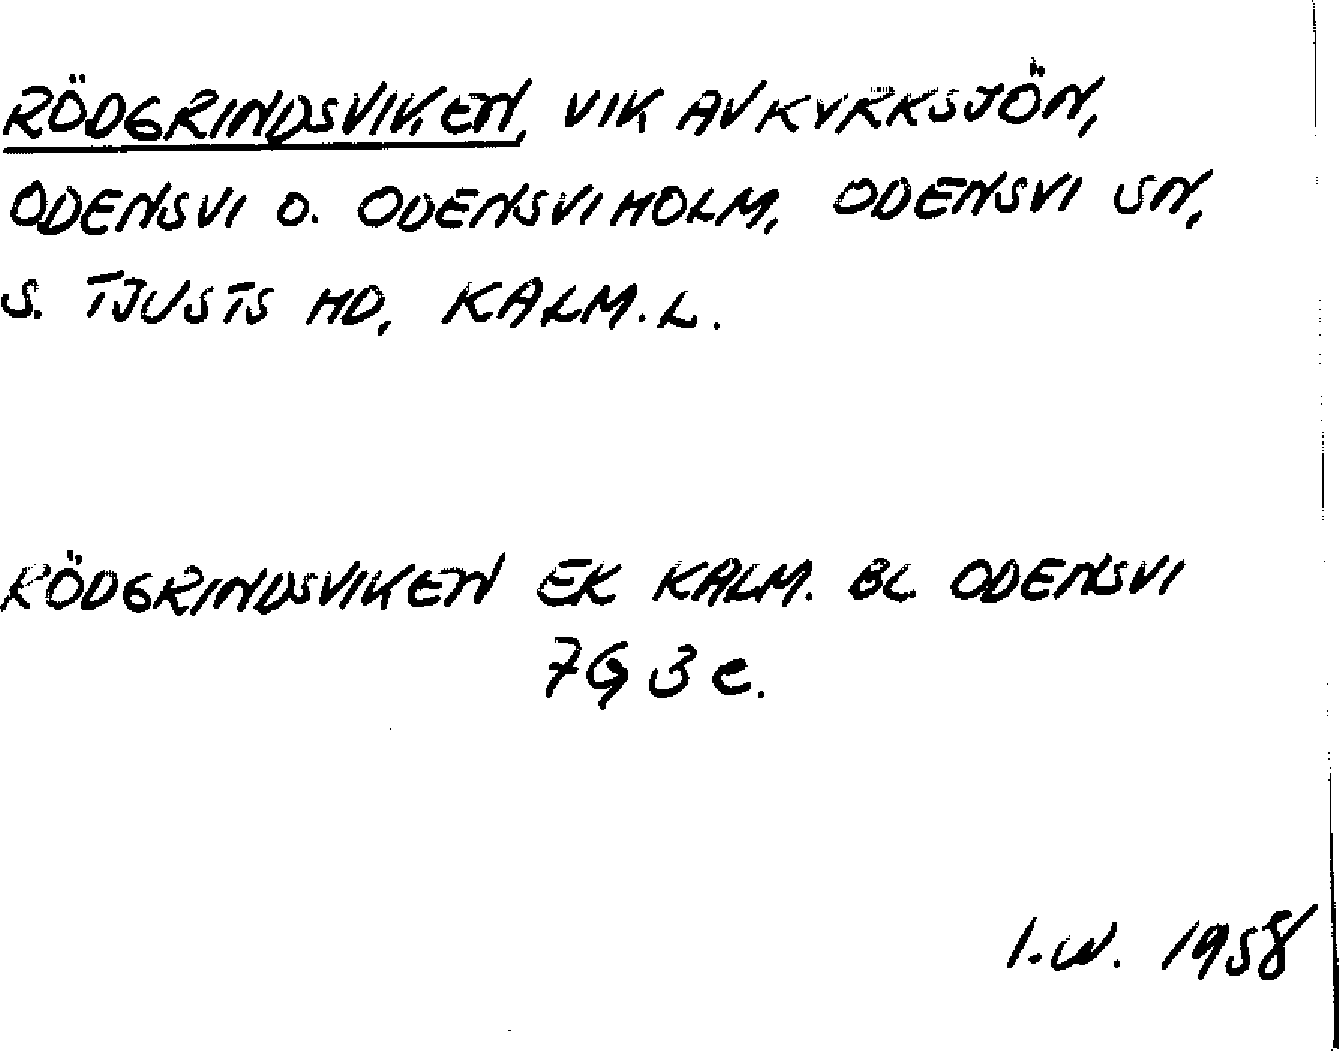 RÖDGRINDSVIKEN, VIK AV KYRKSJÖN,
ODENSVI O. ODENSVIHOLM, ODENSVI SN,
S. TJUSTS HD, KALM. L.
RÖDGRINDSVIKEN EK KALM. BL. ODENSVI
7G 3c.
I.W. 1958